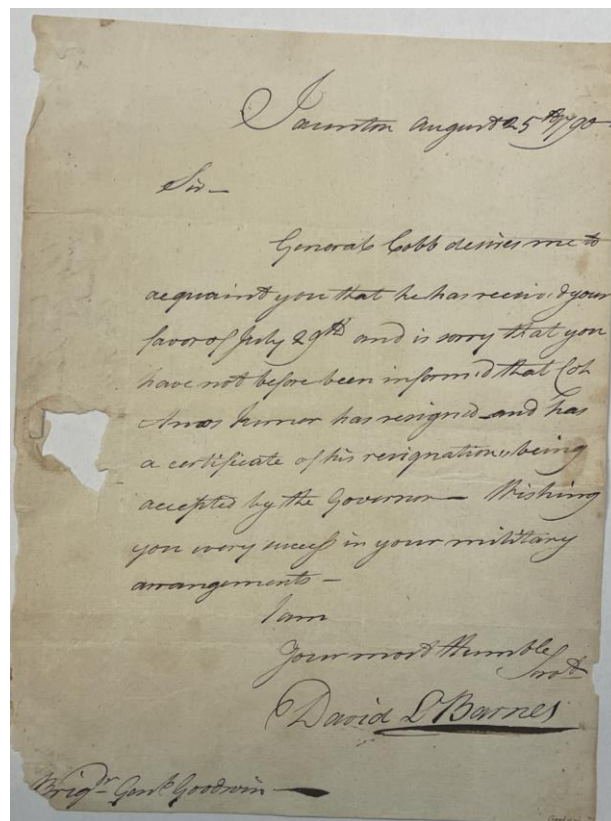 Taunton August 25th 1790
Sir—
General Cobb desires me to
acquaint you that he has receiv'd your
favor of July 29th and is sorry that you
have not before been inform'd that Col
Amos Turner has resigned and has
a certificate of his resignation, being
accepted by the Governor— Wishing
you every success in your military
arrangements—
I am
Your most Humble
Servt
David L Barnes
Brigdr Genl Goodwin—